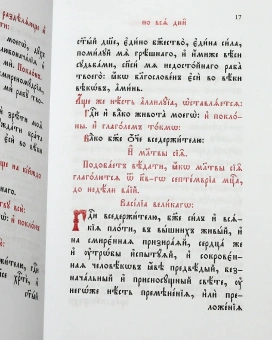 но всѧ̀ дни̑
17
сты́й дш҃е, є҆ди́но бж҃ество̀, є҆ди́на си́ла,
поми́лꙋй мѧ̀ грѣ́шнаго, и҆ и҆́миже вѣ́си
сꙋдьба́ми, сп҃сѝ мѧ̀ недосто́йнаго раба̀
твоего̀: ꙗ҆́кѡ бл҃гослове́нъ є҆сѝ во вѣ́ки
вѣкѡ́въ, а҆ми́нь.
А҆́ще же нѣ́сть а҆ллилꙋ́їа, ѡ҆ставлѧ́етсѧ:
Гдⷭ҇и и҆ влⷣко живота̀ моегѡ̀: и҆ покло́-
ны. и҆ глаго́лемъ то́кмѡ:
Бж҃е и҆ ѻ҆́ч҃е вседержи́телю:
И҆ мл҃твы сїѧ̑.
Подоба́етъ вѣ́дати, ꙗ҆́кѡ мл҃тва сїѧ̀
глаго́летсѧ ѿ к҃в-гѡ септе́мврїа мцⷭ҇а,
до недѣ́ли ва́їй.
Васі́лїа вели́кагѡ:
Гдⷭ҇и вседержи́телю, бж҃е си́лъ и҆ всѧ́-
кїѧ пло́ти, въ вы́шнихъ живы́й, и҆
на смирє́нныѧ призира́ѧй, сердца́ же
и҆ ᲂу҆трѡ́бы и҆спыту́ѧй, и҆ сокровє́н-
наѧ человѣ́кѡвъ ꙗ҆́вѣ предвѣ́дый, безна-
ча́льный и҆ присносꙋ́щный свѣ́те, ᲂу҆
негѡ́же нѣ́сть премѣне́нїѧ, и҆лѝ прело-
же́нїѧ